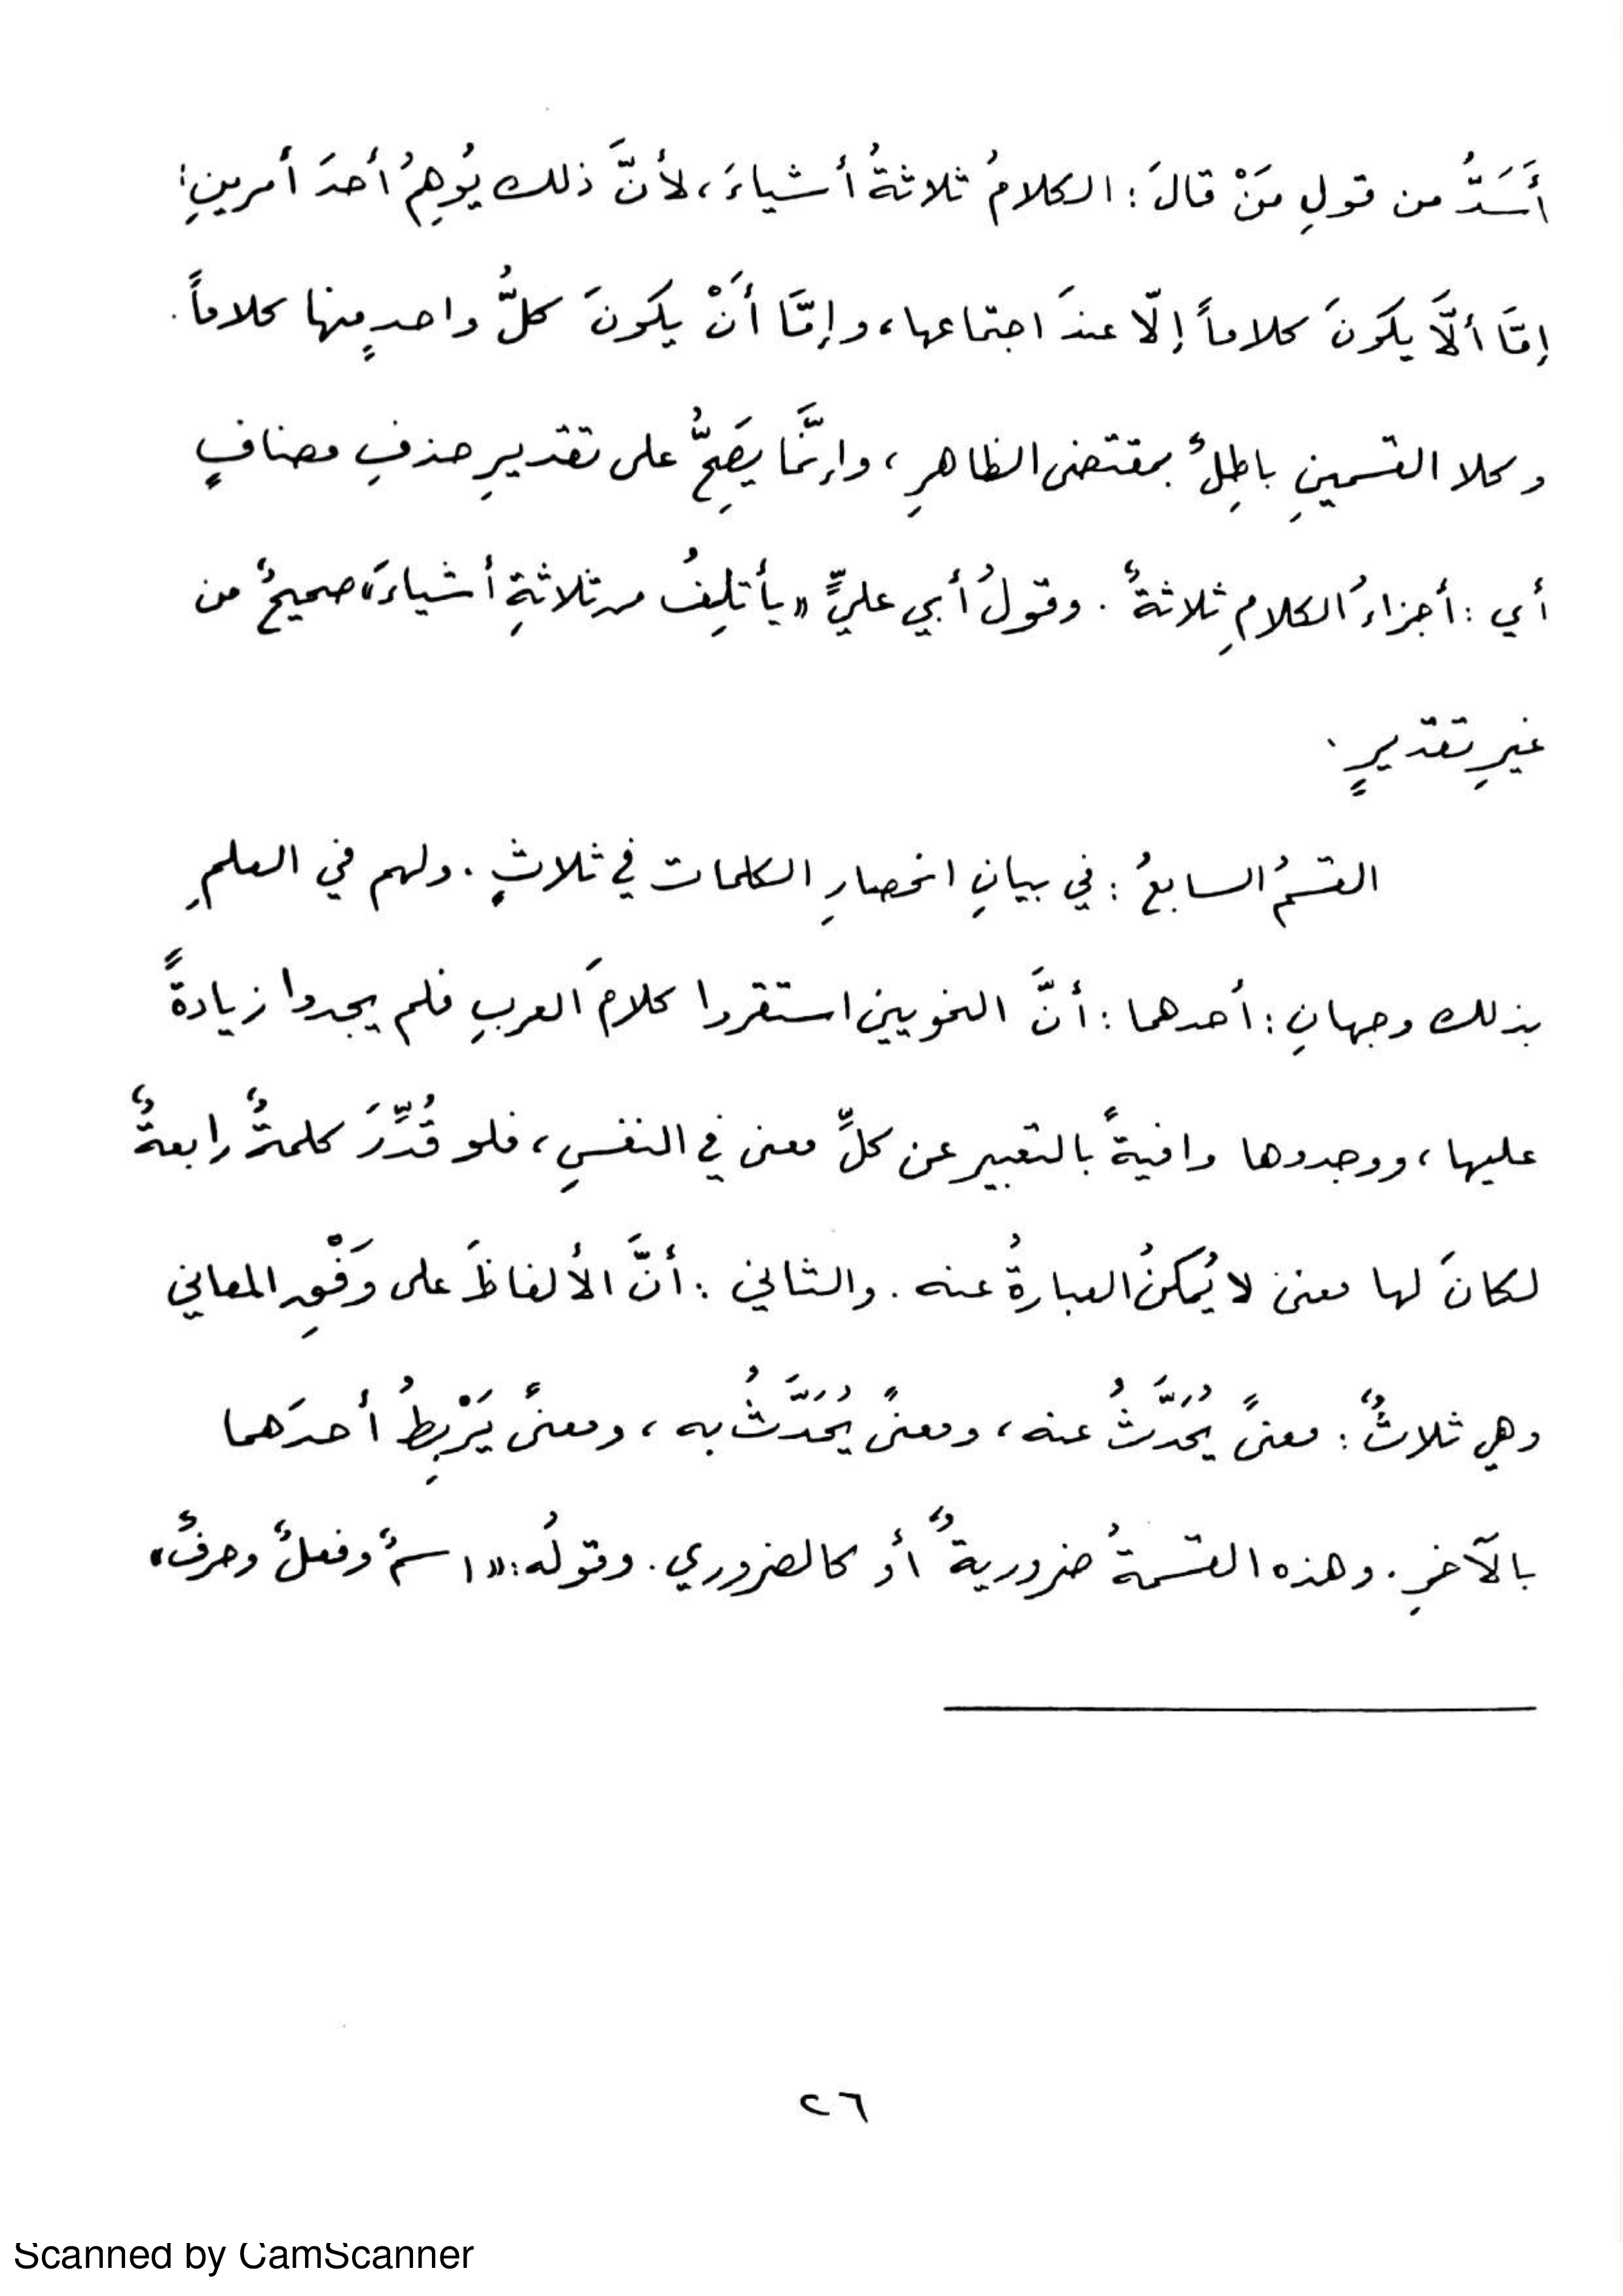 أَسَدُّ من قولِ مَنْ قالَ : الكلامُ ثلاثةُ أشياءَ ، لأنَّ ذلك يُوهِمُ أحدَ أمرينِ :
إمَّا ألَّا يكونَ كلاماً إلّا عندَ اجتماعها ، وإمَّا أَنْ يكونَ كلُّ واحدٍ منها كلاماً .
وكلا القسمينِ باطِلٌ بمقتضى الظاهرِ ، وإنَّما يصَحُّ على تقديرِ حذفِ مضافٍ
أي : أجزاءُ الكلامِ ثلاثةٌ . وقولُ أبي عليٍّ « يأتلِفُ من ثلاثةِ أشياءَ » صحيحٌ من
غيرِ تقديرٍ .
القسمُ السابعُ : في بيانِ انحصارِ الكلمات في ثلاثٍ . ولهم في العلمِ
بذلك وجهانِ : أحدهما : أنَّ النحويين استقروا كلامَ العربِ فلم يجدوا زيادةً
عليها ، ووجدوها وافيةً بالتعبير عن كلِّ معنى في النفسِ ، فلو قُدِّرَ كلمةٌ رابعةٌ
لكانَ لها معنىً لا يُمكنُ العبارةُ عنه . والثاني : أنَّ الألفاظَ على وَفْقِ المعاني
وهي ثلاثٌ : معنىً يُحَدَّثُ عنه ، ومعنىً يُحَدَّثُ به ، ومعنىً يَرْبِطُ أحدَهما
بالآخرِ . وهذه القسمةُ ضروريةٌ أو كالضروري . وقولُه : « اسمٌ وفعلٌ وحرفٌ »
٢٦
Scanned by CamScanner